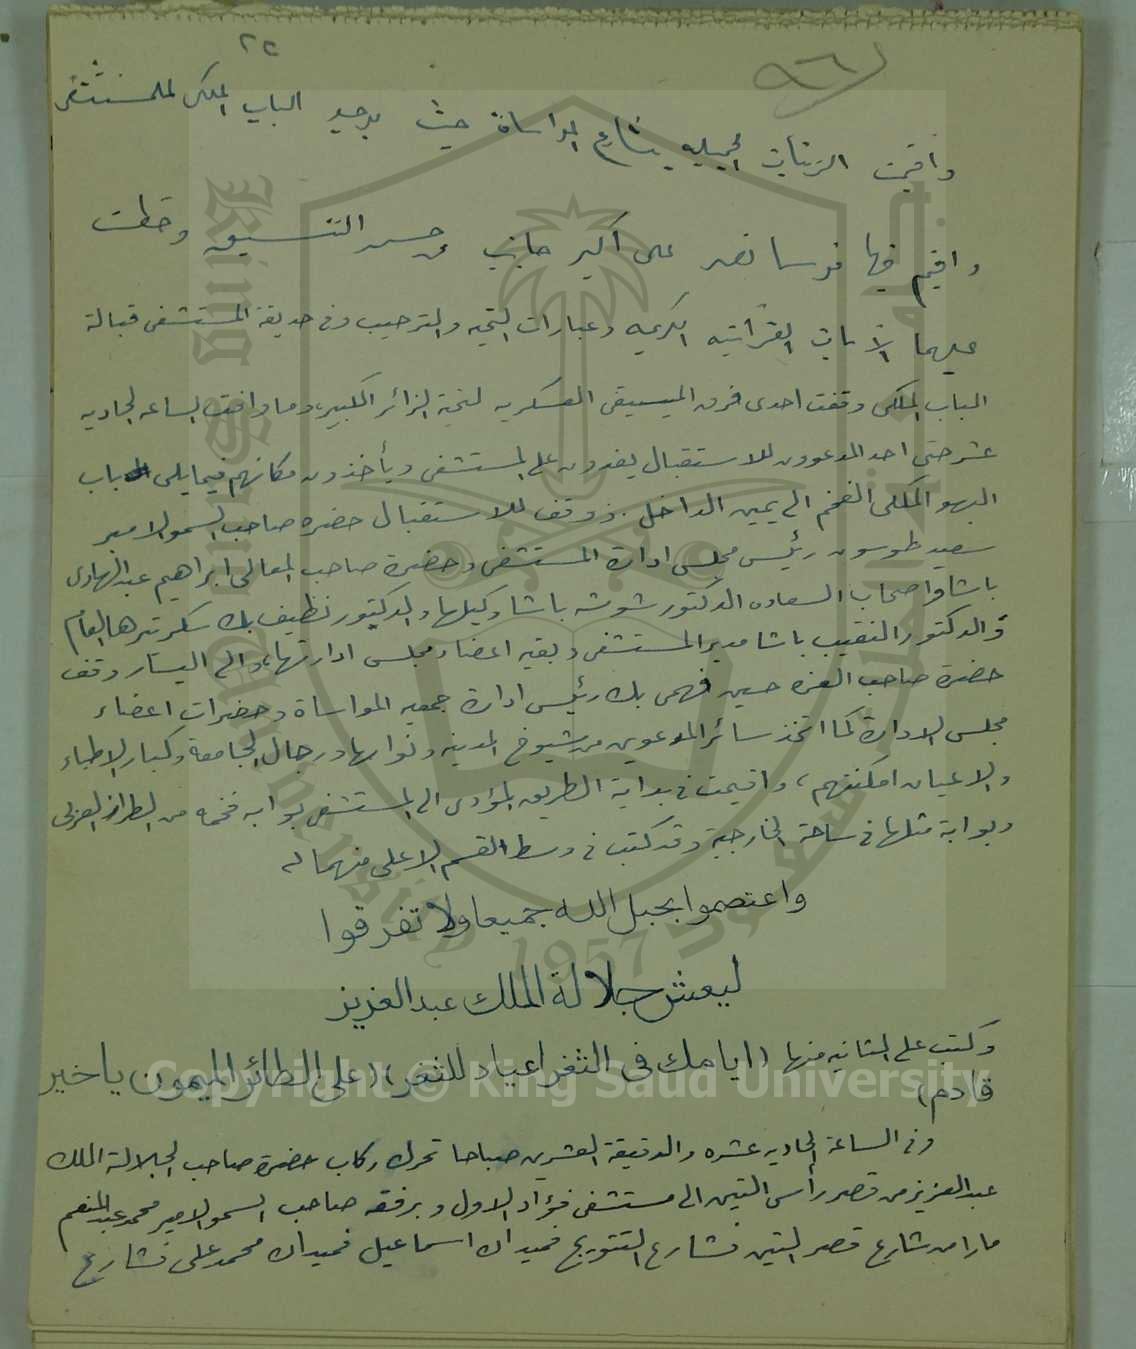 ٢٢
٩٦
واقيمت الزينات الجميله بشارع المواساة حيث يوجد الباب الملكى للمستشفى
واقيم فيها قوسا نصر على أكبر جانب من حسن التنسيق وخطت
عليهما الآيات القرآنيه الكريمه وعبارات التحيه والترحيب وفى حديقة المستشفى قبالة
الباب الملكى وقفت احدى فرق الميسيقى العسكريه لتحية الزائر الكبير، وما وافت الساعه الحاديه
عشر حتى اخذ المدعوون للاستقبال يفدون على المستشفى ويأخذون مكانهم فيما يلى باب
البهو الملكى الفخم الى يمين الداخل. ووقف للاستقبال حضره صاحب السمو الامير
سعيد طوسون رئيس مجلس ادارة المستشفى وحضرة صاحب المعالى ابراهيم عبد الهادى
باشا واصحاب السعاده الدكتور شوشه باشا وكيلها والدكتور نظيف بك سكرتيرها العام
والدكتور النقيب باشا مدير المستشفى وبقيه اعضاء مجلس ادارتها، والى اليسار وقف
حضرة صاحب العزه حسين فهمى بك رئيس ادارة جمعيه المواساة وحضرات اعضاء
مجلس الادارة كما اتخذ سائر المدعوين من شيوخ المدينه ونوابها ورجال الجامعة وكبار الاطباء
والاعيان امكنتهم، واقيمت فى بداية الطريق المؤدى الى المستشفى بوابه فخمه من الطراز العربى
وبوابة مثلها فى ساحة الخارجية وقد كتب فى وسط القسم الاعلى منهما
واعتصموا بحبل الله جميعا ولا تفرقوا
ليعش جلالة الملك عبدالعزيز
وكتب على الثانيه منها (ايامك فى الثغر اعياد للثغر) (على الطائر الميمون يا خير
قادم)
وفى الساعة الحاديه عشره والدقيقة العشرين صباحا تحرك ركاب حضرة صاحب الجلالة الملك
عبدالعزيز من قصر رأس التين الى مستشفى فؤاد الاول وبرفقه صاحب السمو الامير محمد عبد المنعم
مارا من شارع قصر التين فشارع التتويج فميدان اسماعيل فميدان محمد على فشارع
King Saud University
جامعة الملك سعود
1957
Copyright © King Saud University